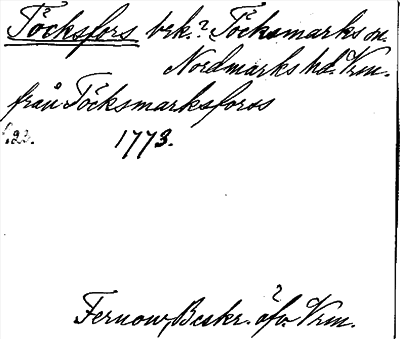 Töcksfors brk.? Töcksmarks sn.
Nordmarks hd. Vrm.
från Töcksmarksforss
s. 22. 1773.
Fernow, Beskr. öfv. Vrm.